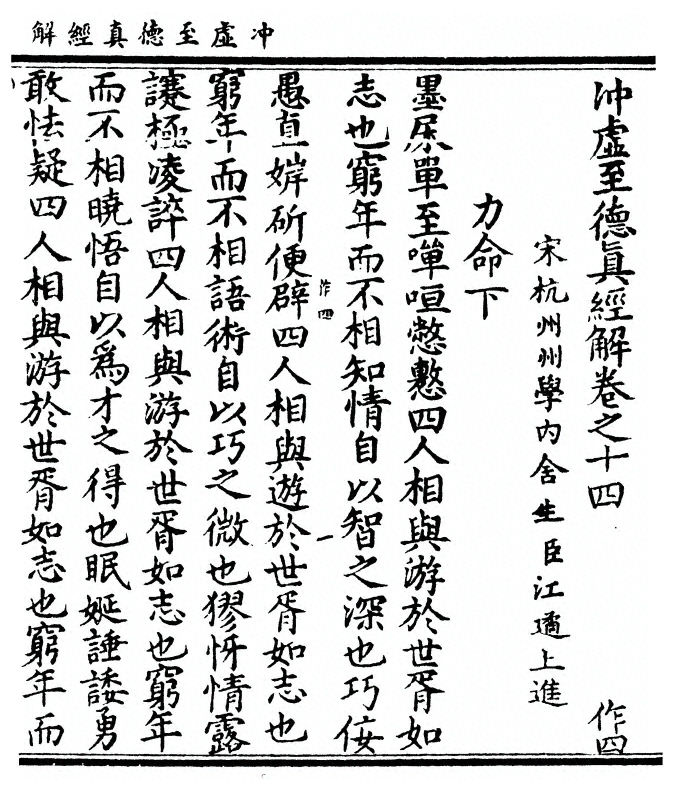 冲虛至德真經解
冲虛至德眞經解卷之十四 作四
宋杭州州學內舍生臣江遹上進
力命下
墨㞘單至嘽咺憋憨四人相與游於世胥如
志也窮年而不相知情自以智之深也巧佞
愚直婩斫便辟四人相與遊於世胥如志也
作四
窮年而不相語術自以巧之微也㺒㤉情露
讓極凌誶四人相與游於世胥如志也窮年
而不相曉悟自以爲才之得也眠娗諈諉勇
敢怯疑四人相與游於世胥如志也窮年而